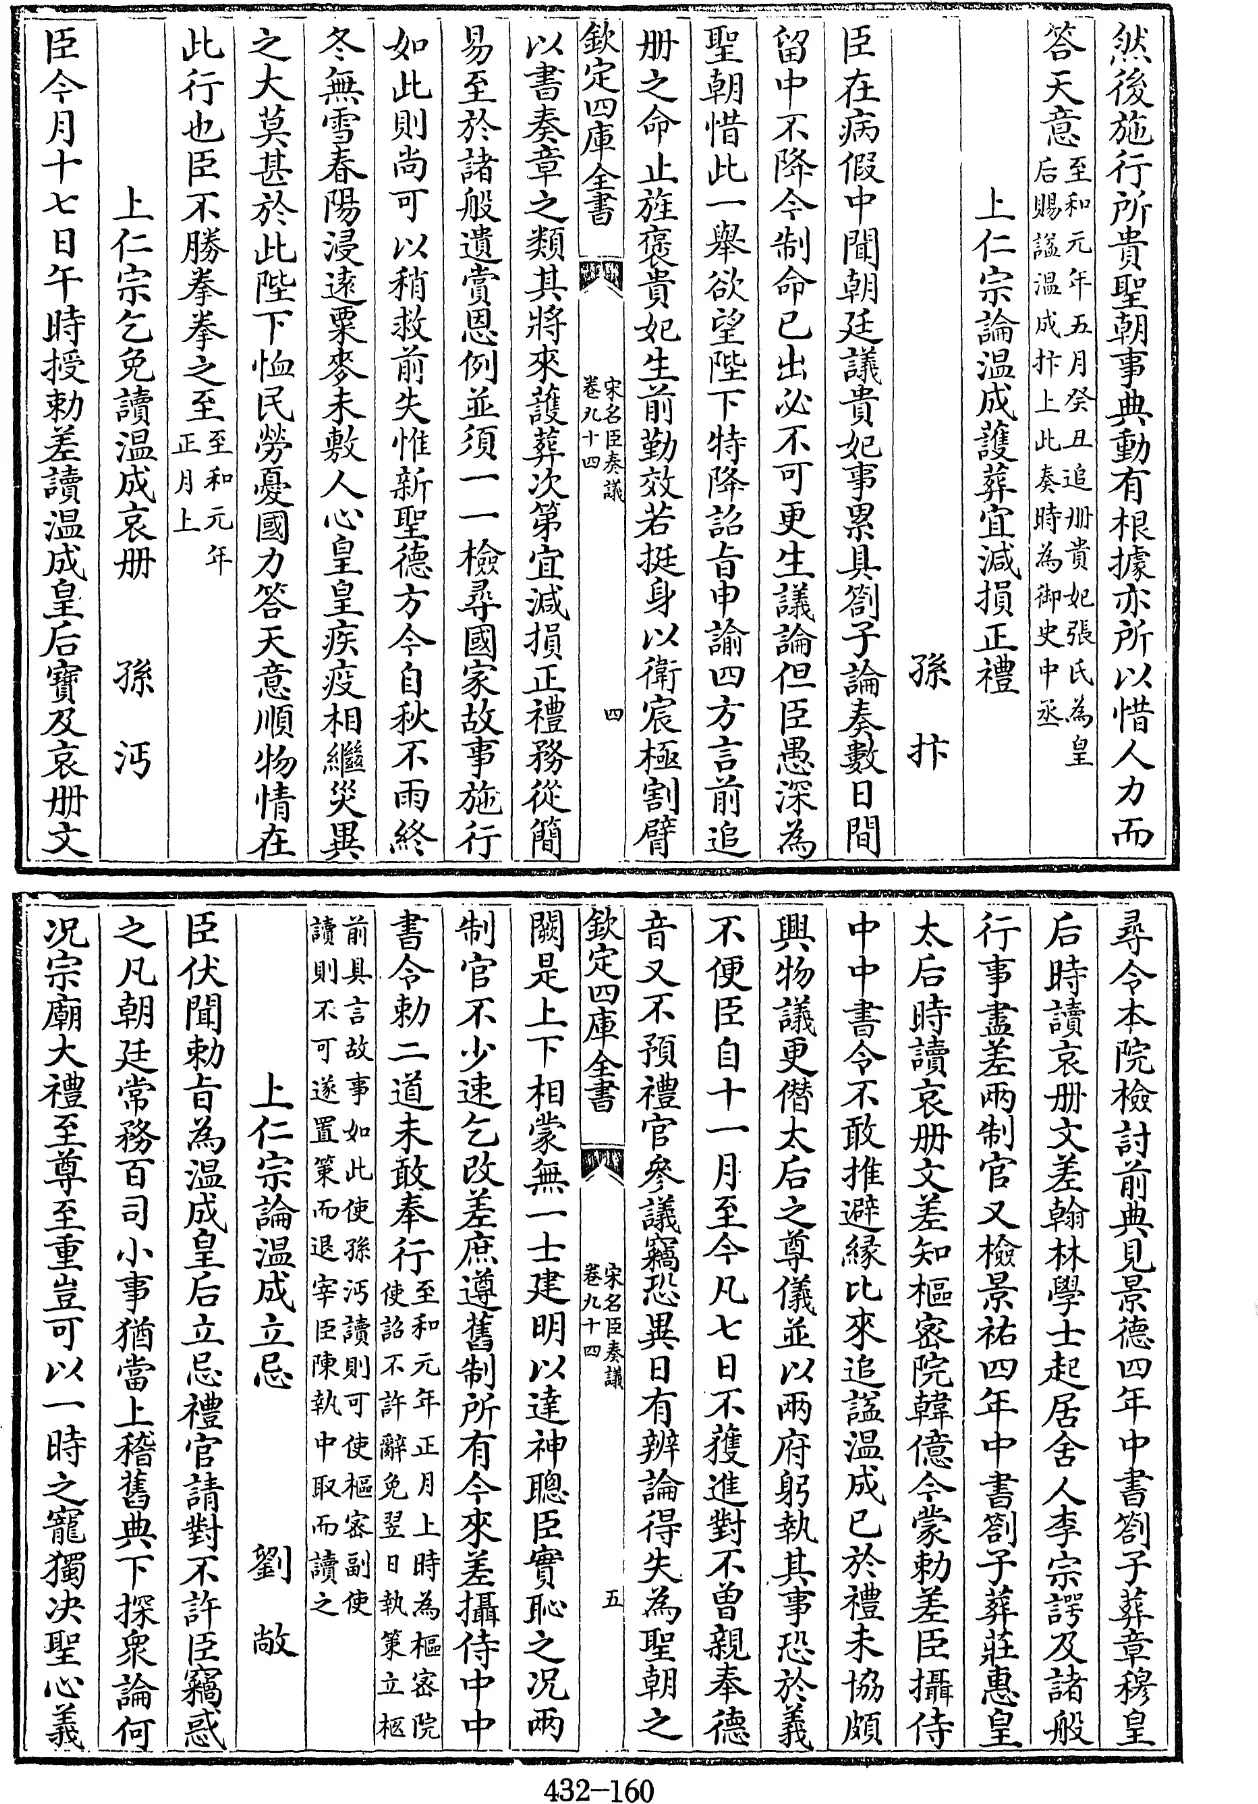 然後施行所貴聖朝事典動有根據亦所以惜人力而
答天意至和元年五月癸丑追册貴妃張氏為皇
后賜諡温成抃上此奏時為御史中丞
上仁宗論温成護葬宜減損正禮
孫抃
臣在病假中聞朝廷議貴妃事累具劄子論奏數日間
留中不降今制命已出必不可更生議論但臣愚深為
聖朝惜此一舉欲望陛下特降詔旨申諭四方言前追
册之命止旌褒貴妃生前勤效若挺身以衛宸極割臂
欽定四庫全書
宋名臣奏議
卷九十四
四
以書奏章之類其將來護葬次第宜減損正禮務從簡
易至於諸般遺賞恩例並須一一檢尋國家故事施行
如此則尚可以稍救前失惟新聖德方今自秋不雨終
冬無雪春陽浸遠粟麥未敷人心皇皇疾疫相繼災異
之大莫甚於此陛下恤民勞憂國力答天意順物情在
此行也臣不勝拳拳之至至和元年
正月上
上仁宗乞免讀温成哀册 孫沔
臣今月十七日午時授勅差讀温成皇后寶及哀册文
尋令本院檢討前典見景德四年中書劄子葬章穆皇
后時讀哀册文差翰林學士起居舍人李宗諤及諸般
行事盡差兩制官又檢景祐四年中書劄子葬莊惠皇
太后時讀哀册文差知樞密院韓億今蒙勅差臣攝侍
中中書令不敢推避緣比來追諡温成已於禮未協頗
興物議更僭太后之尊儀並以兩府躬執其事恐於義
不便臣自十一月至今凡七日不獲進對不曾親奉德
音又不預禮官參議竊恐異日有辨論得失為聖朝之
欽定四庫全書
宋名臣奏議
卷九十四
五
闕是上下相蒙無一士建明以達神聰臣實恥之况兩
制官不少速乞改差庶遵舊制所有今來差攝侍中中
書令勅二道未敢奉行至和元年正月上時為樞密院
使詔不許辭免翌日執策立柩
前具言故事如此使孫沔讀則可使樞密副使
讀則不可遂置策而退宰臣陳執中取而讀之
上仁宗論温成立忌 劉敞
臣伏聞勅旨為温成皇后立忌禮官請對不許臣竊惑
之凡朝廷常務百司小事猶當上稽舊典下探衆論何
况宗廟大禮至尊至重豈可以一時之寵獨决聖心義
432-160